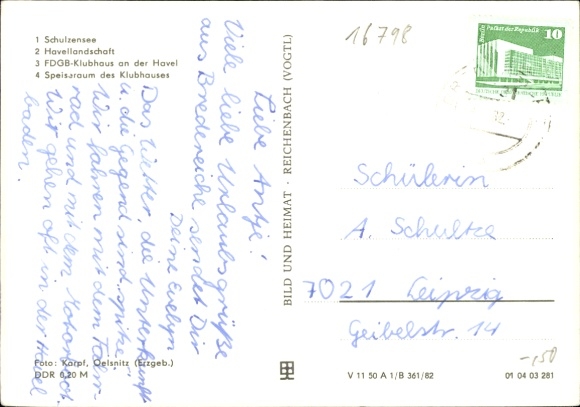 1 Schulzensee
2 Havellandschaft
3 FDGB-Klubhaus an der Havel
4 Speisraum des Klubhauses
Liebe Antje!
Viele liebe Urlaubsgrüße
aus Bredereiche sendet Dir
Deine Evelyn
Das Wetter, die Unterkunft
u. die Gegend sind spitze.
Wir fahren mit dem Fahr-
rad und mit dem Motorboot.
Wir gehen oft in der Havel
baden.
Foto: Karpf, Oelsnitz (Erzgeb.)
DDR 0,20 M
BILD UND HEIMAT · REICHENBACH (VOGTL)
16798
Berlin Palast der Republik
10
Schülerin
A. Schultze
7021 Leipzig
Geibelstr. 14
-,50
V 11 50 A 1/B 361/82
01 04 03 281